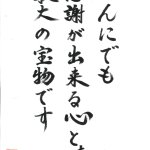 んにでも
謝が出来る心と
大の宝物です